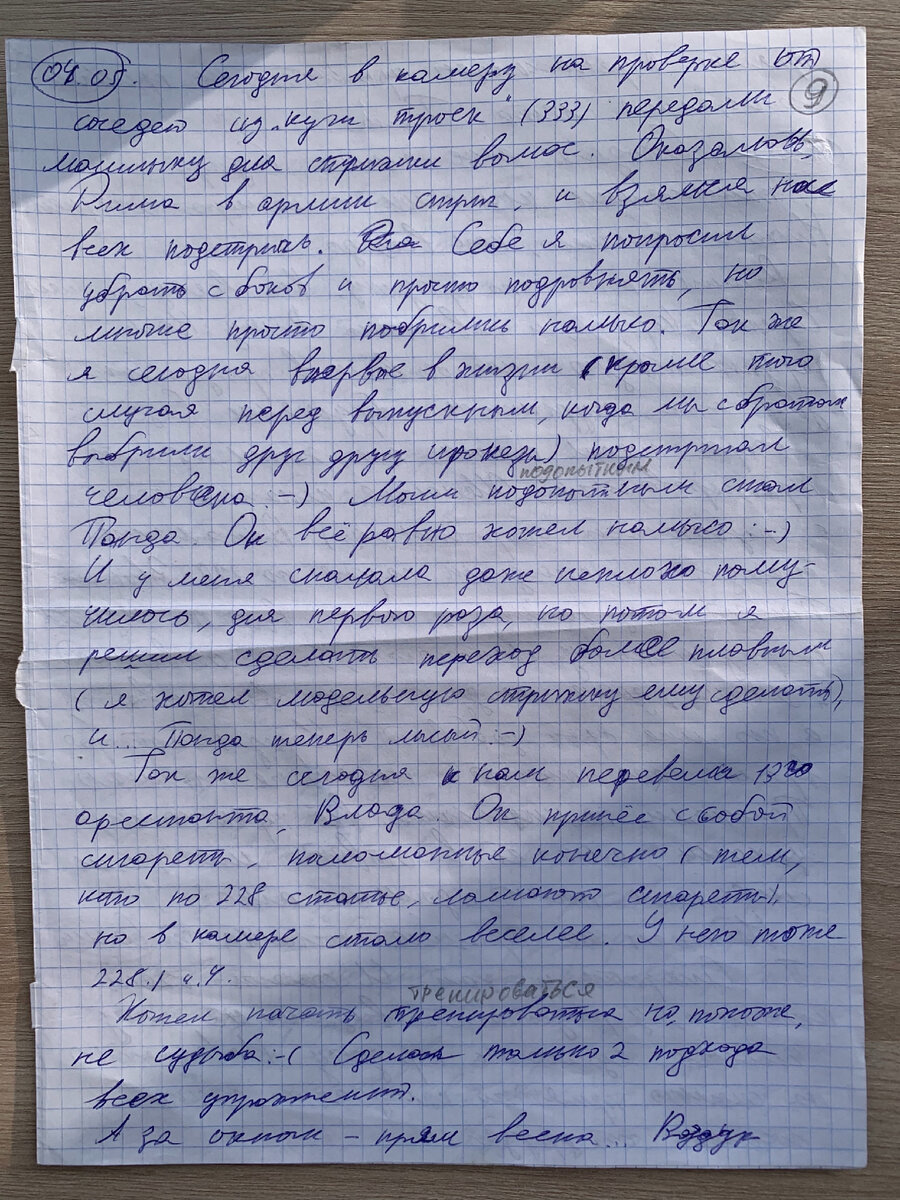 04.05. Сегодня в камеру на проверке от
9
соседей из „кучи тросс" (333) передали
машинку для стрижки волос. Оказалось,
Дима в армии стриг, и взялся нас
всех подстричь. Себе я попросил
убрать с боков и просто подровнять, но
многие просто побрились налысо. Так же
я сегодня впервые в жизни (кроме того
случая перед выпускным, когда мы с братом
выбрили друг другу ирокезы) подстригал
подопытным
человека :-) Моим подопытным стал
Панда. Он всё равно хотел налысо :-)
И у меня сначала даже неплохо полу-
чилось, для первого раза, но потом я
решил сделать переход более плавным
(я хотел модельную стрижку ему сделать),
и... Панда теперь лысый :-)
Так же сегодня к нам перевели 13го
арестанта, Влада. Он принёс с собой
сигареты, поломанные конечно (тем,
кто по 228 статье, ломают сигареты),
но в камере стало веселее. У него тоже
228.1 ч.4.
тренироваться
Хотел начать тренироваться но, похоже,
не судьба :-( Сделал только 2 подхода
всех упражнений.
А за окном – прям весна... Воздух